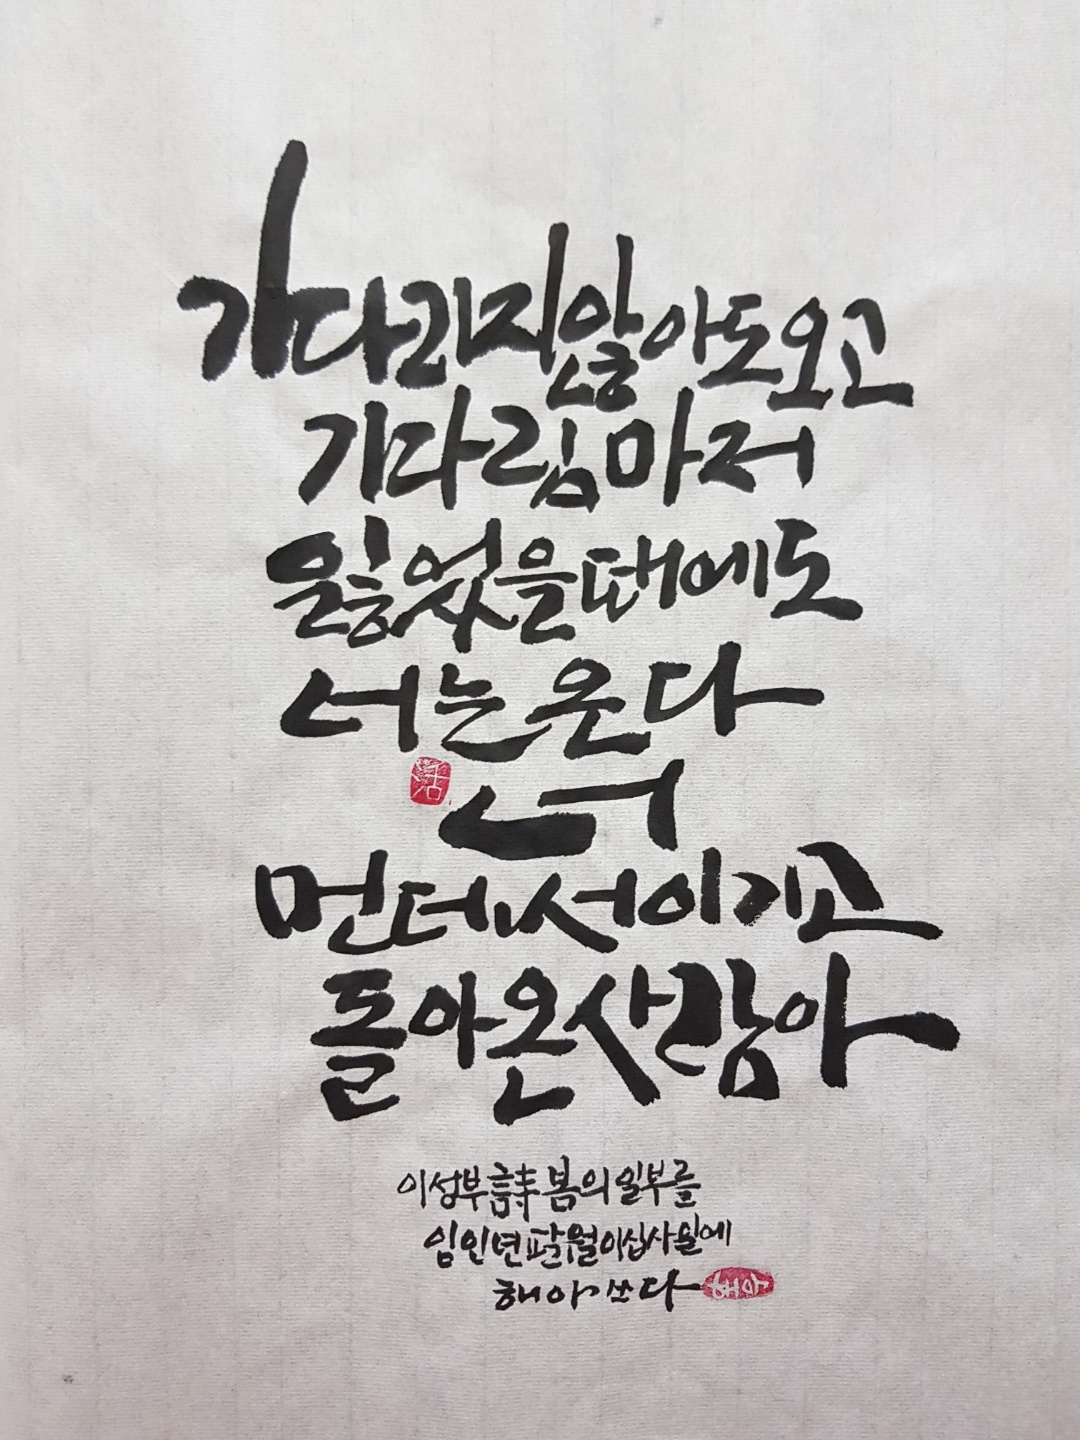 기다리지 않아도 오고
기다림마저
잃었을 때에도
너는 온다
너
먼데서 이기고
돌아온 사람아
이성부 詩 봄의 일부를
임인년 팔월 이십사일에
해아 쓰다
해아